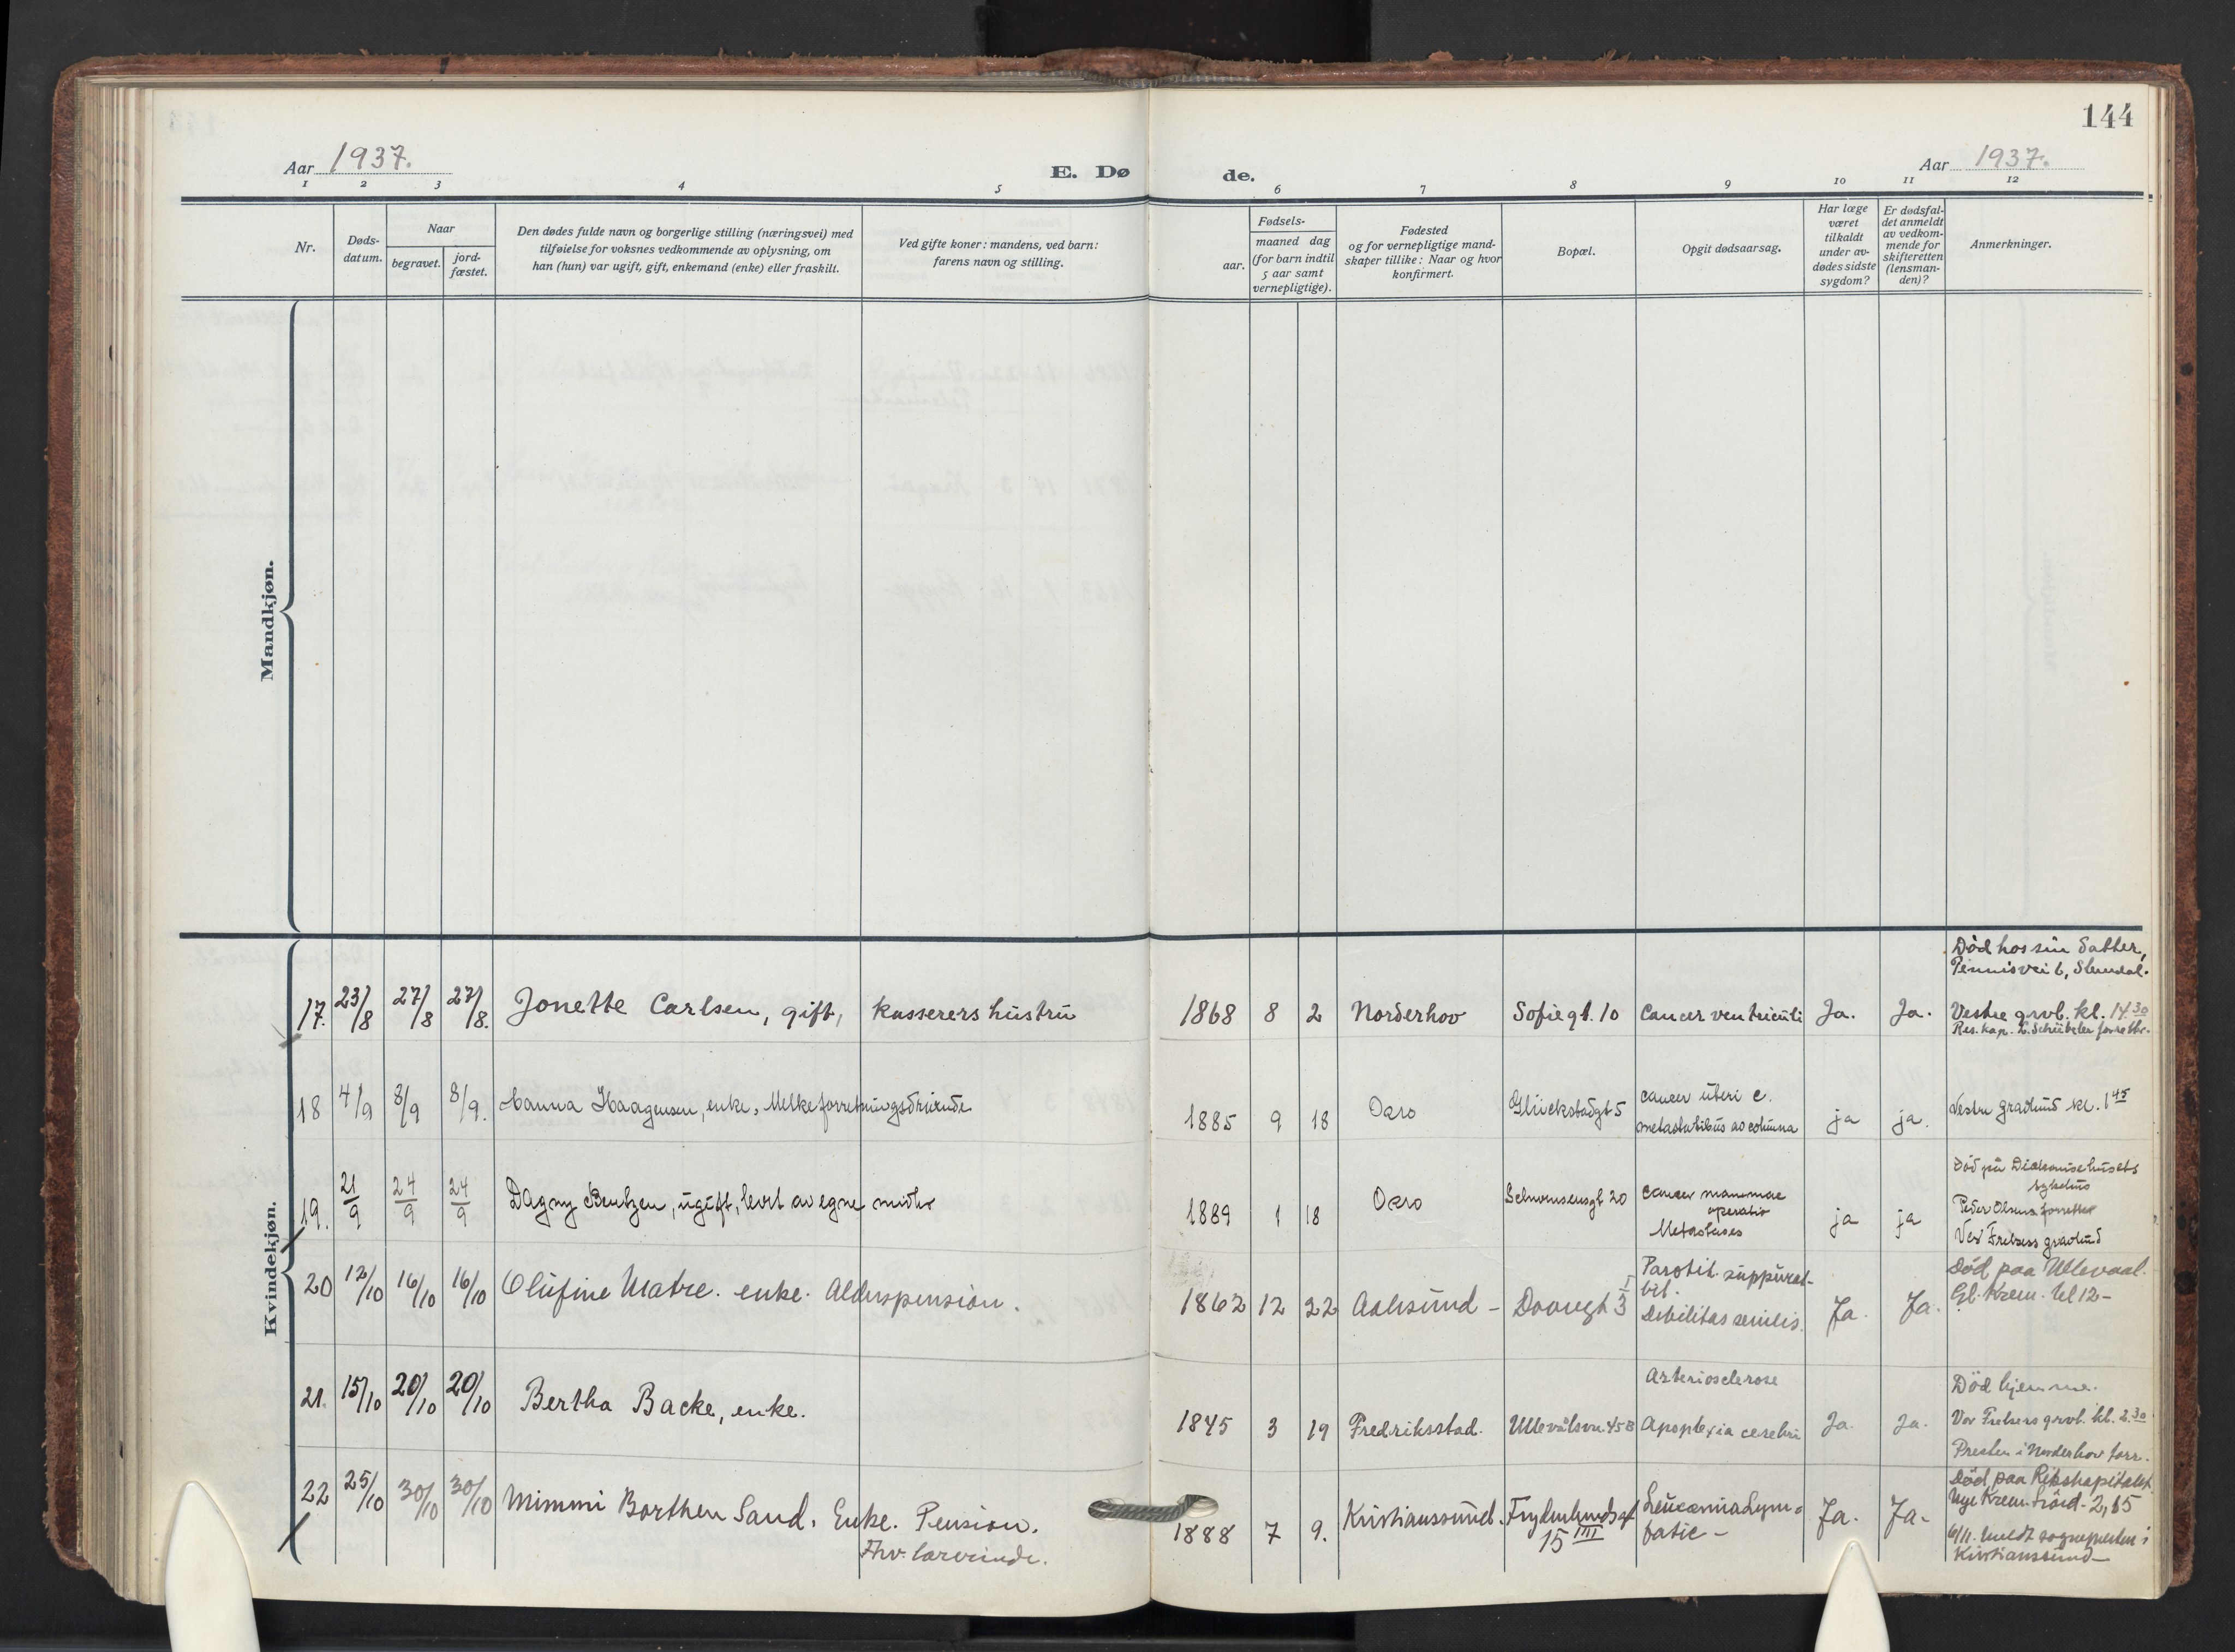 144
Aar 1937.
E. Dø de.
Aar 1937.
1 2 3 4 5 6 7 8 9 10 11 12
Nr.
Døds-
datum.
Naar
begravet.
jord-
fæstet.
Den dødes fulde navn og borgerlige stilling (næringsvei) med
tilføielse for voksnes vedkommende av oplysning, om
han (hun) var ugift, gift, enkemand (enke) eller fraskilt.
Ved gifte koner: mandens, ved barn:
farens navn og stilling.
Fødsels-
aar.
maaned dag
(for barn indtil
5 aar samt
vernepligtige).
Fødested
og for vernepligtige mand-
skaper tillike: Naar og hvor
konfirmert.
Bopæl.
Opgit dødsaarsag.
Har læge
været
tilkaldt
under av-
dødes sidste
sygdom?
Er dødsfal-
det anmeldt
av vedkom-
mende for
skifteretten
(lensman-
den)?
Anmerkninger.
Mandkjøn.
Kvindekjøn.
Død hos sin datter,
17. 23/8 27/8 27/8. Jonette Carlsen, gift, kasserers hustru 1868 8 2 Norderhov Sofiegt. 10 Cancer ventriculi Ja. Ja. Vestre grvl. kl. 14.30
Res. kap. Schübeler forrettet.
18 4/9 8/9 8/9. Hanna Haagensen, enke, Melkeforretningsdrivende 1885 9 18 Oslo Glückstadgt 5 cancer uteri c.
metastatibus ad columna ja ja. Vestre gravlund kl. 1 45
19. 21/9 24/9 24/9 Dagny Bentzen, ugift, levt av egne midler 1889 1 18 Oslo Schwensensgt 20 Cancer mammae
operatio
Metastases ja ja Død på Diakonissehusets
sykehus
Peder Olsen forrettet
Vår Frelsers gravlund
20 12/10 16/10 16/10 Olufine Matre. enke. Alderspension. 1862 12 22 Aalesund - Dovregt 3 I Parotit. suppurat-
bil.
Debilitas senilis. Ja. Ja. Død paa Ullevaal.
Gl. Krem. kl 12-
21. 15/10 20/10 20/10 Bertha Backe, enke. 1845 3 19 Fredriksstad. Ullevålsvn. 45B Arteriosclerose
Apoplexia cerebri Ja. Ja. Død hjemme.
Vor Frelsers grvl. kl. 2.30
Presten i Norderhov forr.
22 25/10 30/10 30/10 Mimmi Borthen Sand. Enke. Pension.
Fhv. lærerinde. 1888 7 9. Kristianssund. Frydenlundsgt
15 III Leucæmia Lym-
fatic - Ja. Ja- Død paa Rikshospitalet.
Nye Krem. 2,15
6/11. meldt sognepresten i
Kristianssund-